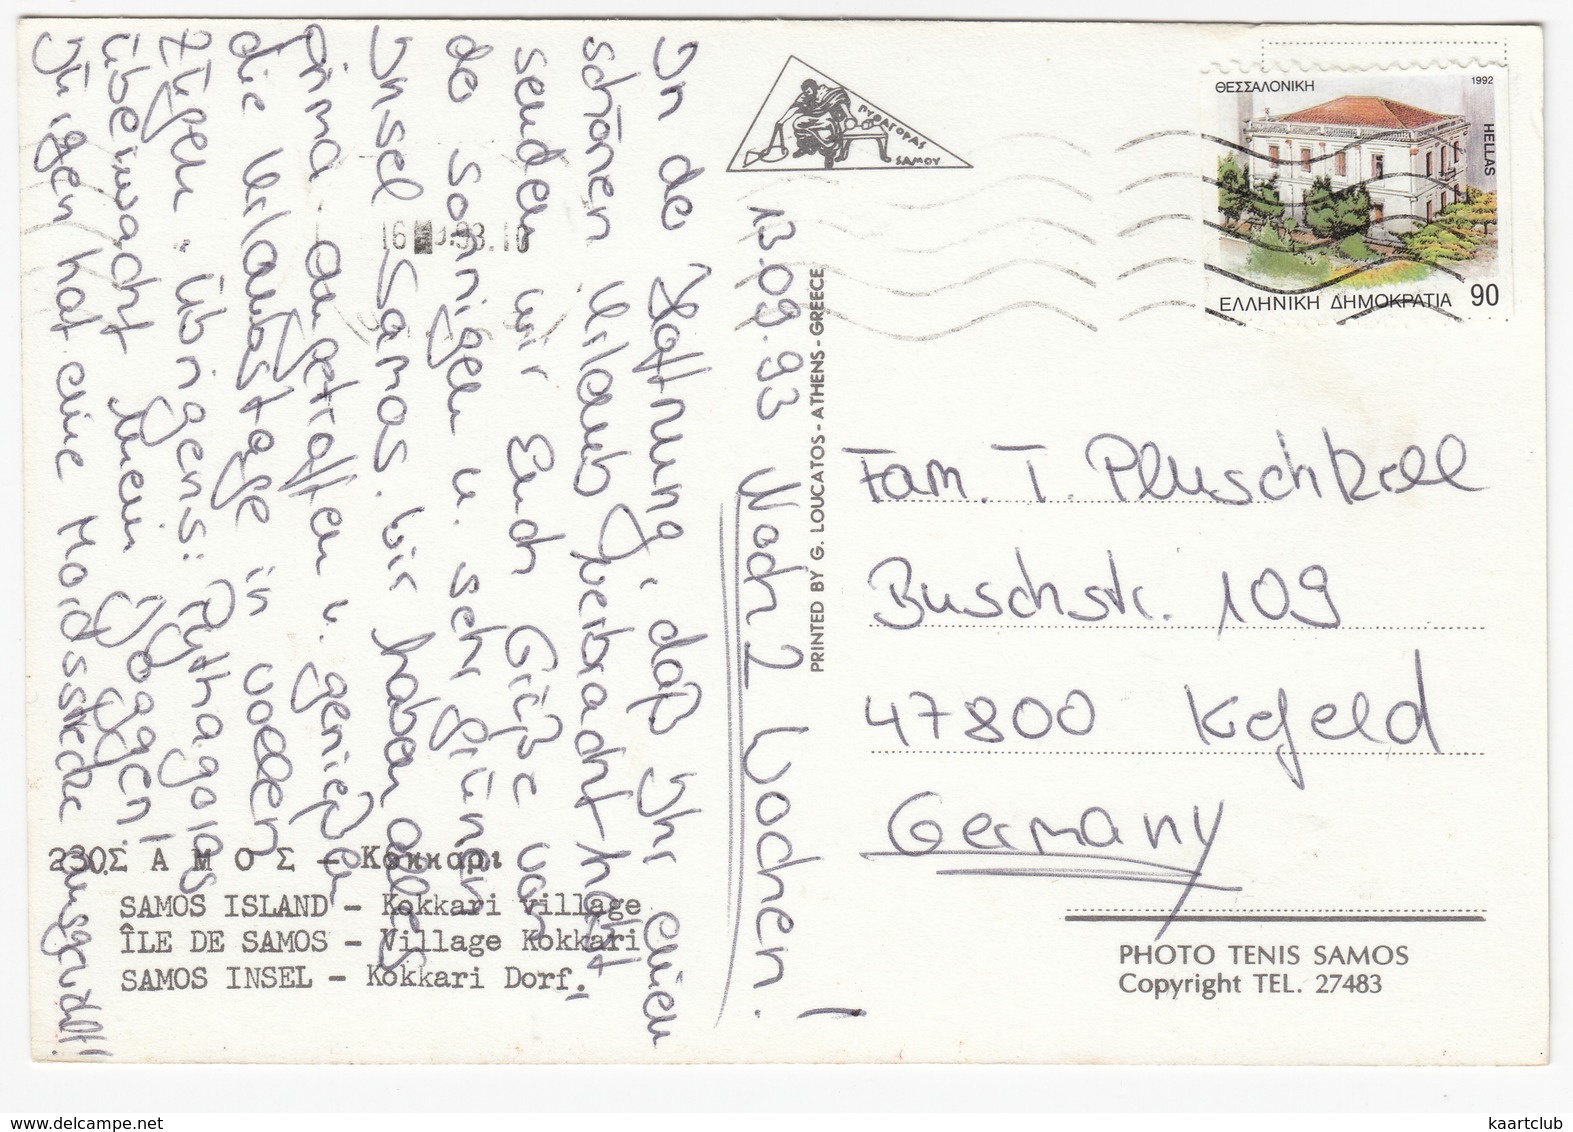 13.09.93 Noch 2 Wochen!
In der Hoffnung, daß Ihr einen
schönen Urlaub verbracht habt,
senden wir Euch Grüße von
der sonnigen u. sehr grünen
Insel Samos. Wir haben alles
prima angetroffen u. genießen
die Urlaubstage in vollen
Zügen. Übrigens: Pythagoras
überwacht mein Joggen!
Übrigen hat eine Mordsstrecke ausgewählt!
ΠΥΘΑΓΟΡΑΣ
ΣΑΜΟΥ
16 93.1
ΘΕΣΣΑΛΟΝΙΚΗ
1992
HELLAS
ΕΛΛΗΝΙΚΗ ΔΗΜΟΚΡΑΤΙΑ 90
PRINTED BY G. LOUCATOS - ATHENS - GREECE
Fam. T. Pluschkell
Buschstr. 109
47800 Krefeld
Germany
230. Σ Α Μ Ο Σ – Κοκκαρι
SAMOS ISLAND – Kokkari village
ÎLE DE SAMOS – Village Kokkari
SAMOS INSEL – Kokkari Dorf.
PHOTO TENIS SAMOS
Copyright TEL. 27483
kaartclub